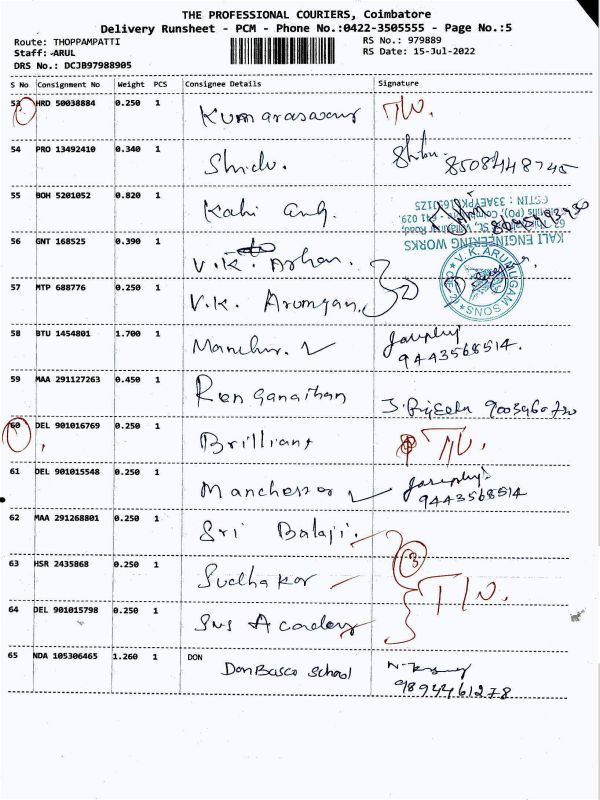 THE PROFESSIONAL COURIERS, Coimbatore
Delivery Runsheet - PCM - Phone No.:0422-3505555 - Page No.:5
Route: THOPPAMPATTI RS No.: 979889
Staff: ARUL RS Date: 15-Jul-2022
DRS No.: DCJB97988905
S No Consignment No Weight PCS Consignee Details Signature
53 HRD 50038884 0.250 1 Kumaraswamy
54 PRO 13492410 0.340 1 Shidu. Shibu.
8508448745
55 BOH 5201052 0.820 1
GSTIN : 33AETPK1653J1Z5
KALI ENGINEERING WORKS
56 GNT 168525 0.390 1 V.K.
V.K.ARUMUGAM SONS
57 MTP 688776 0.250 1 V.K. Arumgam.
58 BTU 1454801 1.700 1 Manchur.
9443568514.
59 MAA 291127263 0.450 1 Renganathan
60 DEL 901016769 0.250 1 Brilliant
61 DEL 901015548 0.250 1 Manchester
9443568514
62 MAA 291268801 0.250 1 Sri Balaji.
3
63 HSR 2435868 0.250 1 Sudhakar
64 DEL 901015798 0.250 1 Sns Academy
65 NDA 105306465 1.260 1 DON
Don Bosco School
9894461278